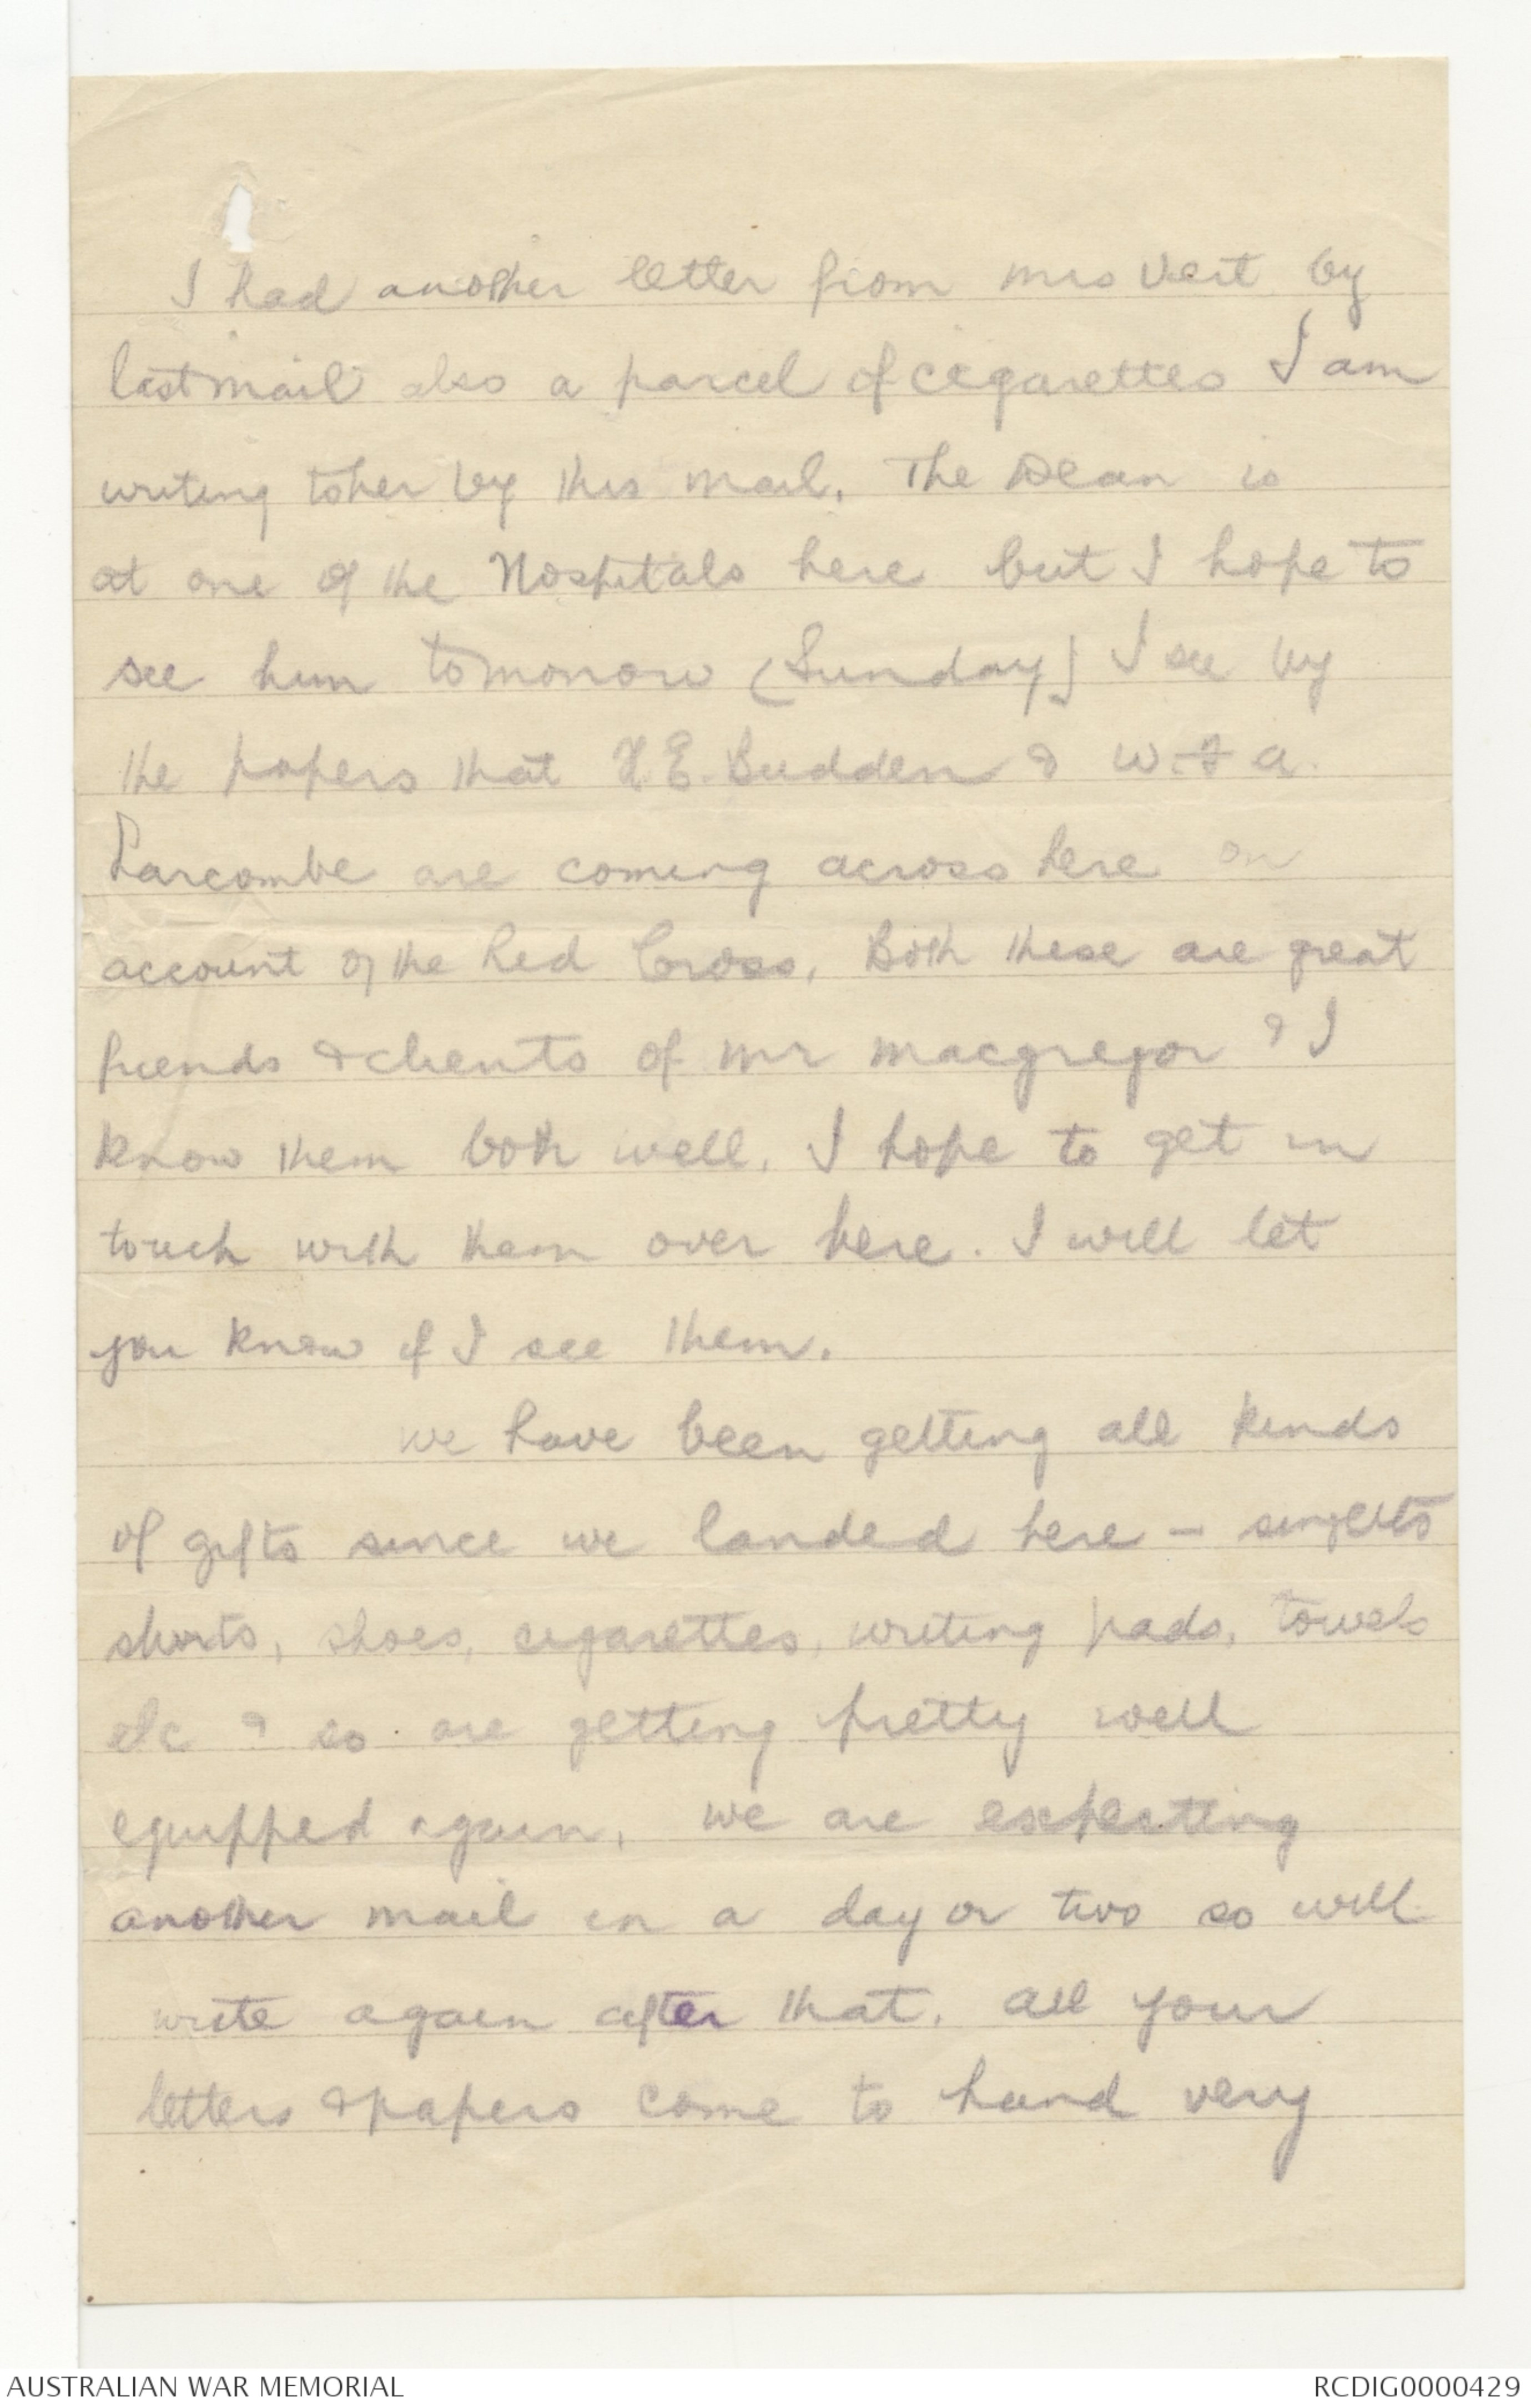 I had another letter from Mrs Vert by
last mail also a parcel of cigarettes I am
writing to her by this mail. The Dean is
at one of the Hospitals here but I hope to
see him tomorrow (Sunday) I see by
the papers that H.E. Budden & W. & A.
Larcombe are coming across here on
account of the Red Cross. Both these are great
friends & clients of Mr Macgregor & I
know them both well. I hope to get in
touch with them over here. I will let
you know if I see them.
We have been getting all kinds
of gifts since we landed here - singlets
shorts, shoes, cigarettes, writing pads, towels
etc & so are getting pretty well
equipped again. We are expecting
another mail in a day or two so will
write again after that. All your
letters & papers come to hand very
AUSTRALIAN WAR MEMORIAL
RCDIG0000429